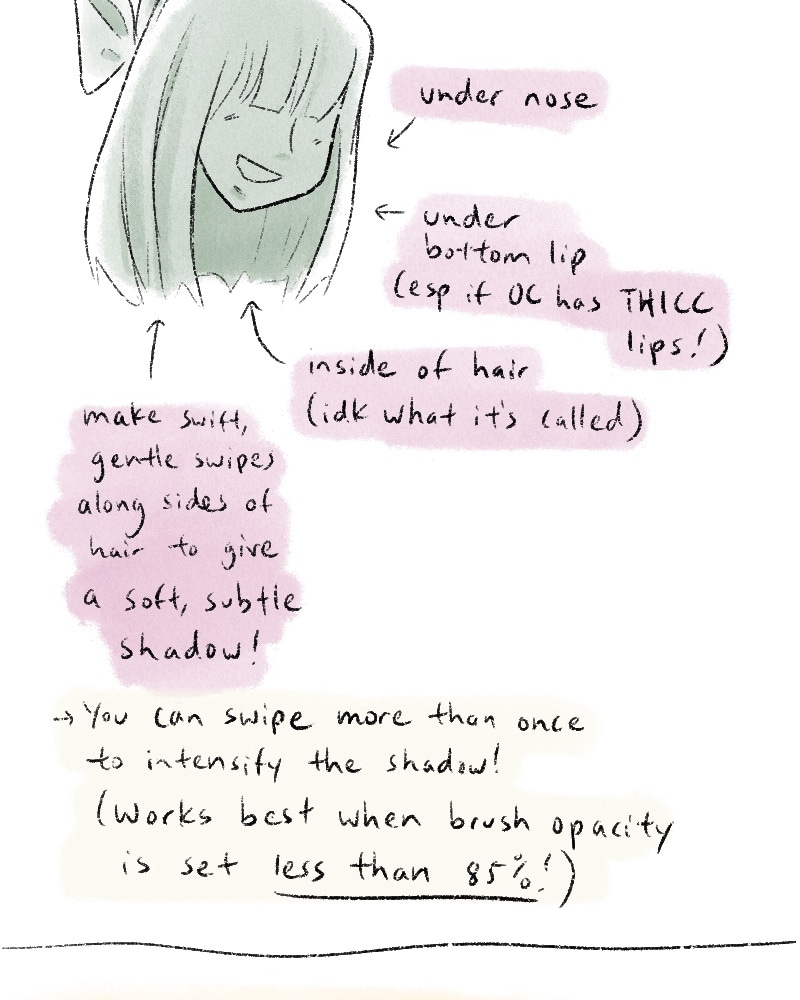 under nose
under
bottom lip
(esp if OC has THICC
lips!)
inside of hair
(idk what it's called)
make swift,
gentle swipes
along sides of
hair to give
a soft, subtle
shadow!
→ You can swipe more than once
to intensify the shadow!
(Works best when brush opacity
is set less than 85%!)